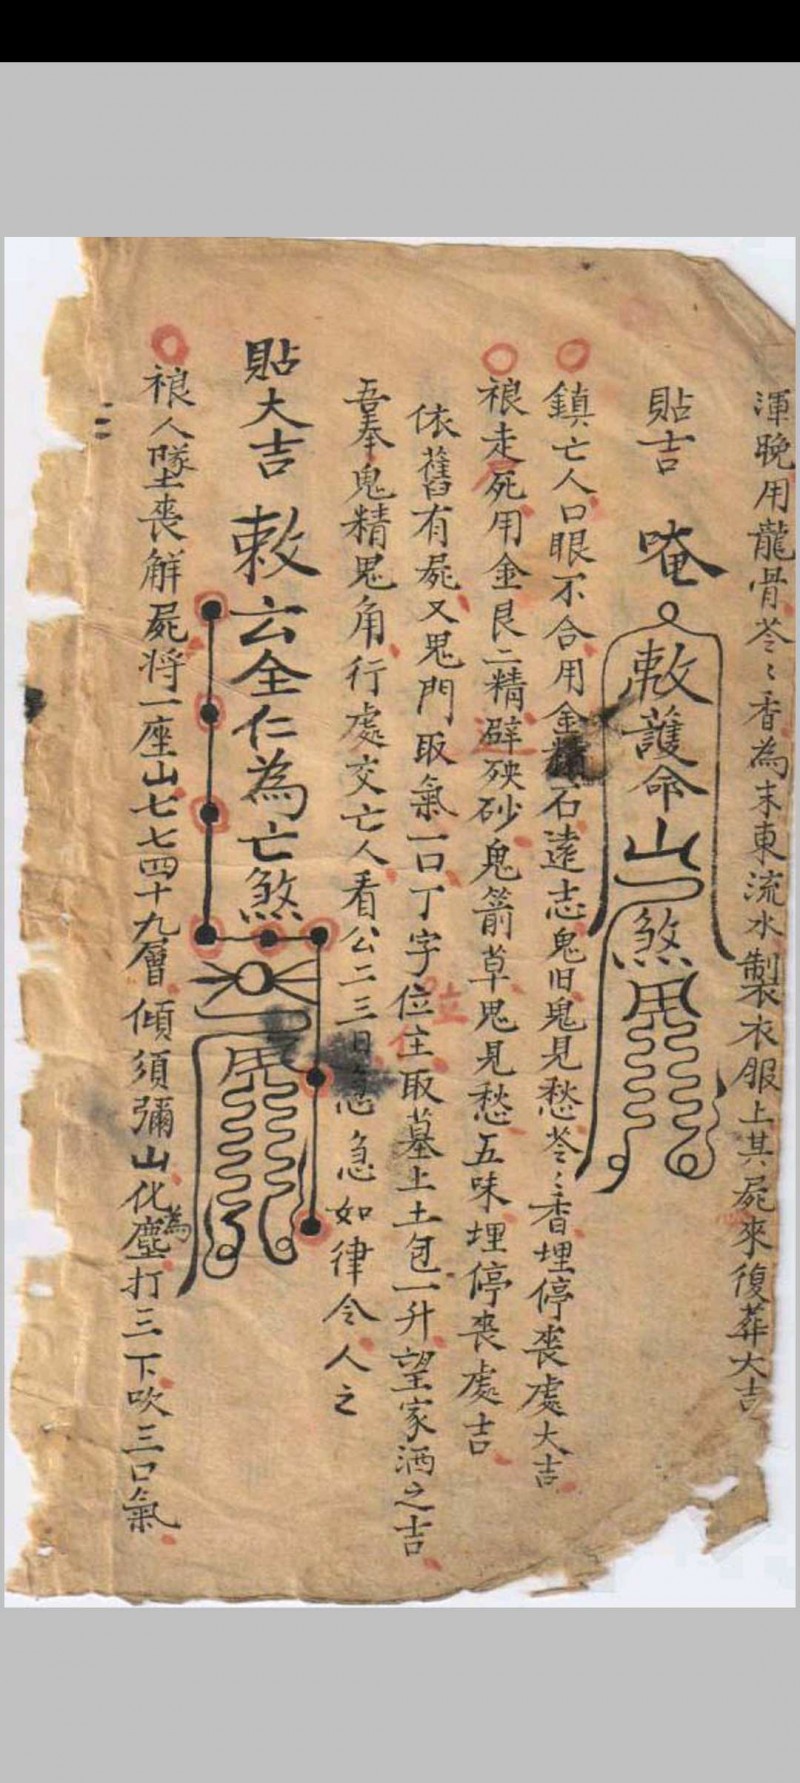 渾晩用龍骨苓〻香為末東流水製衣服上其屍來復葬大吉
貼吉
唵
敕護命山煞
鎮亡人口眼不合用金精石遠志鬼旧鬼見愁苓〻香埋停喪處大吉
走死用金艮二精辟殃砂鬼箭草鬼見愁五味埋停喪處吉
依舊有屍又鬼門取氣一口丁字位主取墓上土包一升望家洒之吉
位
吾奉鬼精鬼角行處交亡人看公二三日急急如律令人之
貼大吉
敕云全仁為亡煞
人墜喪解屍将一座山七七四十九層傾須彌山化為塵打三下吹三口氣